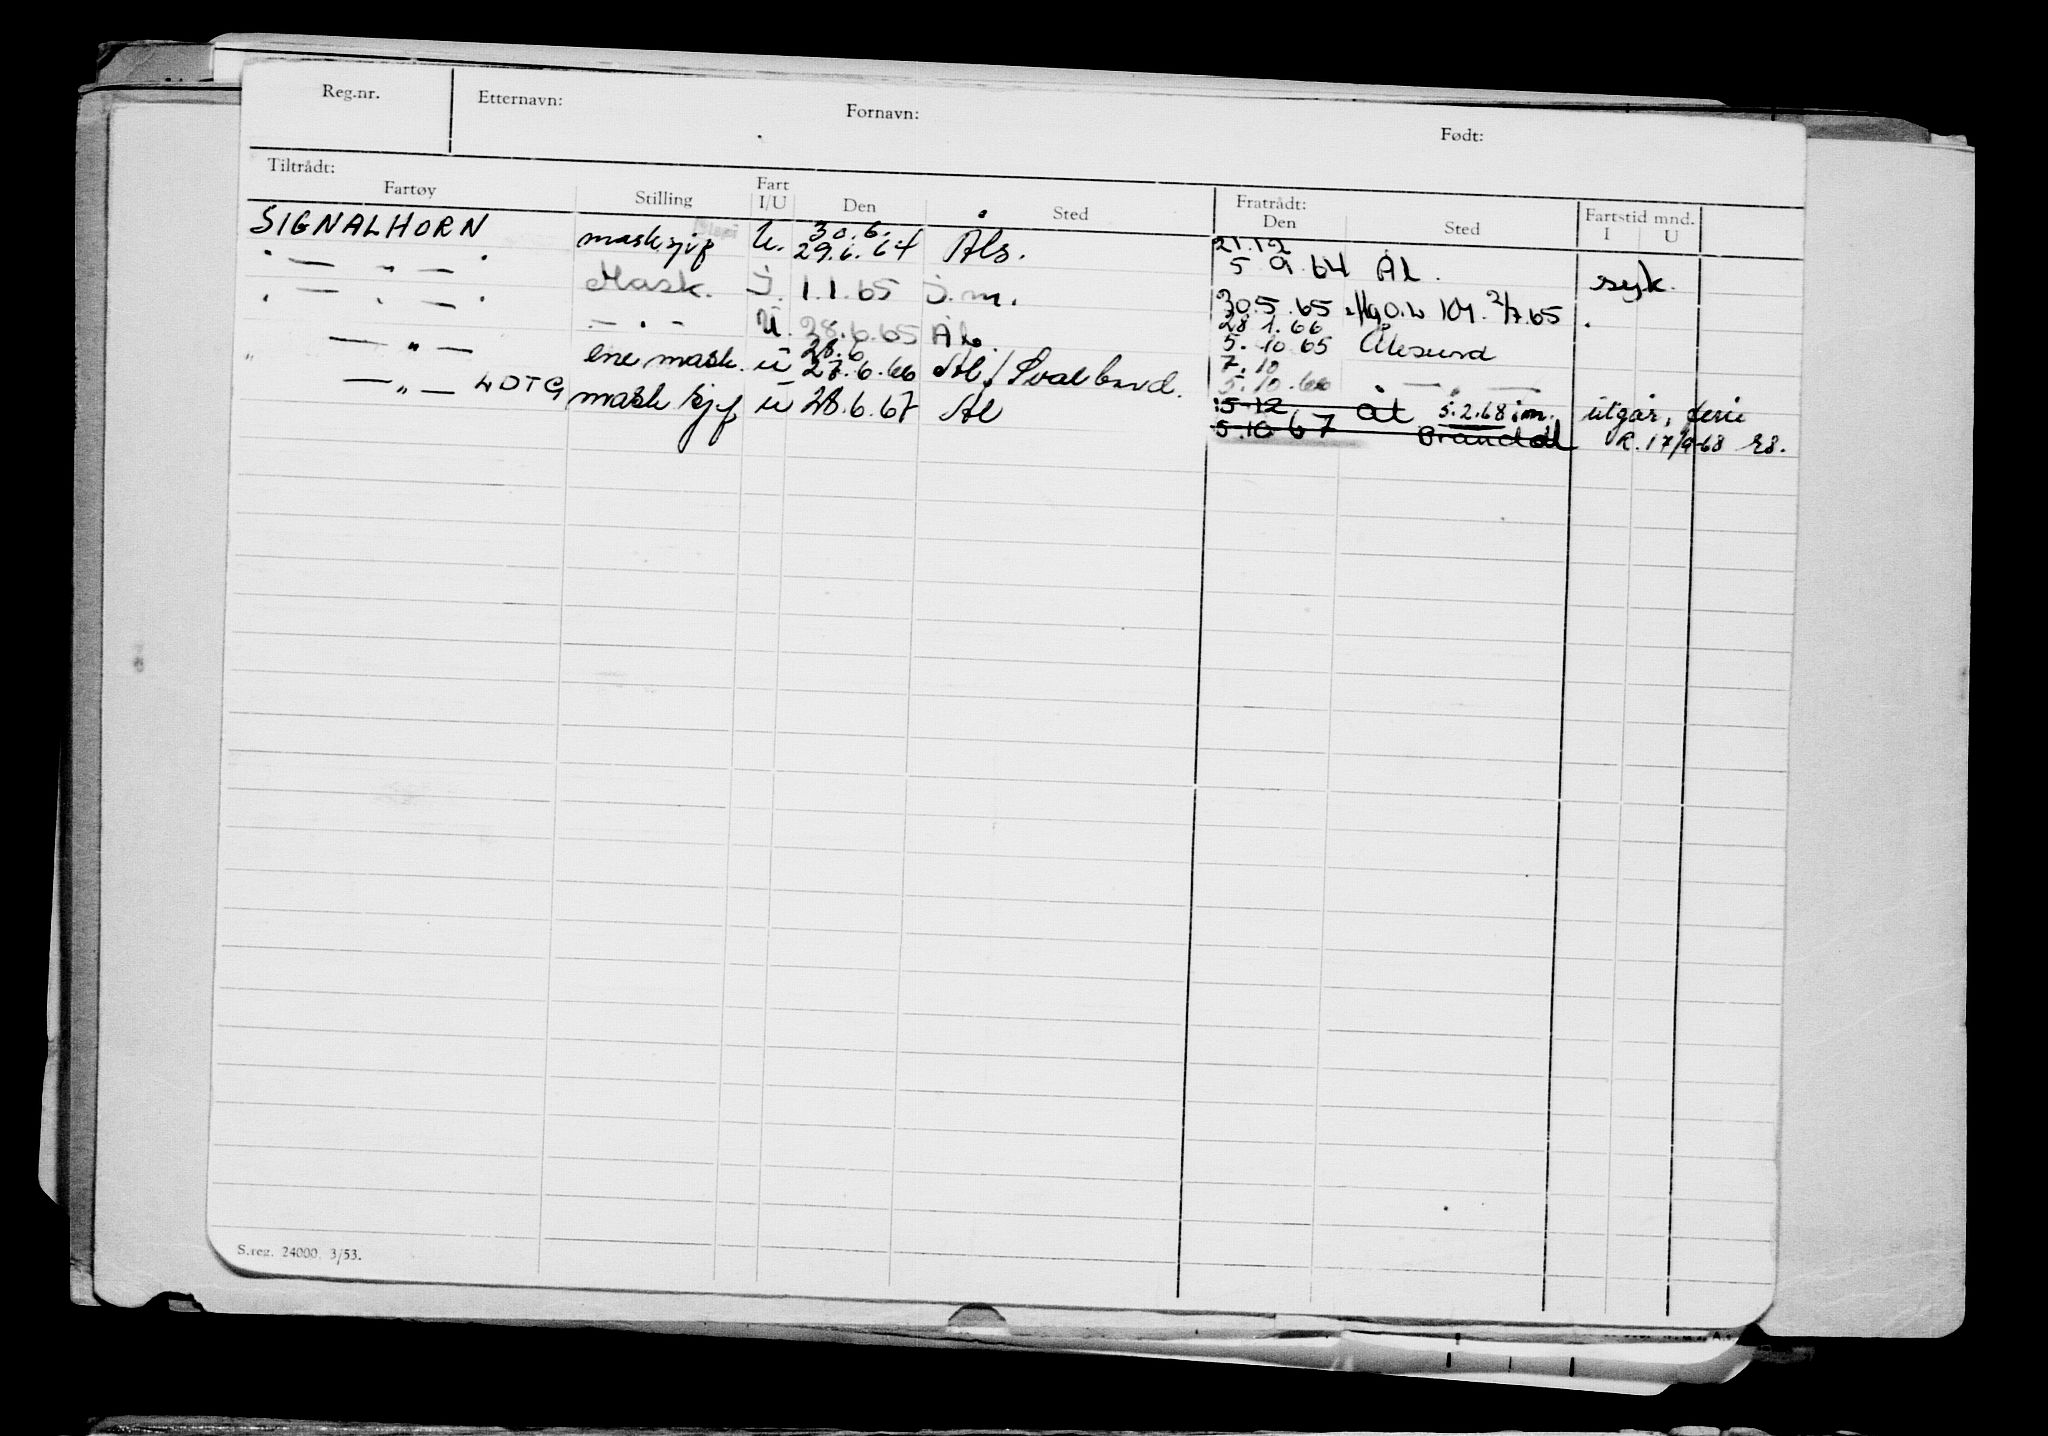 Reg.nr. Etternavn: Fornavn: Født:
Tiltrådt: Fratrådt: Fartstid mnd.
Fartøy Stilling Fart I/U Den Sted Den Sted I U
SIGNALHORN masksjef U. 30.6. 29.6.64 Åls. 21.12 5 9.64 ÅL. syk.
" — " — " Mask. I. 1.1.65 I.m. 30.5.65 101. 2/7.65
" — " — " — " — U. 28.6.65 ÅL. 28 1.66 5.10 65 Ålesund
" — " — ene mask. u 28.6 27.6.66 Ål/Svalbard. 7.10 5.10.66 — " —
— " — LDTG mask sjef u 28.6.67 Ål 15.12 ål 5.2.68 im. utgår, ferie
5.10 67 Brandal R. 17/9-68 RS.
S.reg. 24000. 3/53.